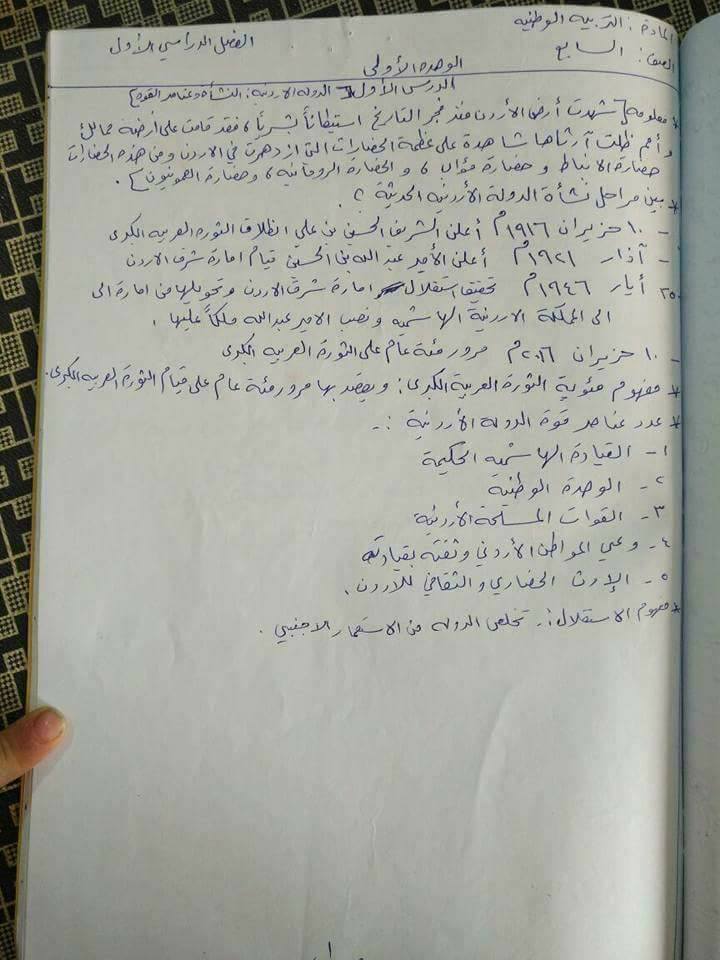 المادة : التربيه الوطنيه
الصف : السابع
الفصل الدراسي الأول
الوحدة الأولى
الدرس الأول { الدوله الاردنية : النشأة وعناصر القوة }
* معلومه { شهدت أرض الأردن منذ فجر التاريخ استيطاناً بشرياً ، فقد قامت على أرضه ممالك
و أمم ظلت آثارها شاهدة على عظمة الحضارات التي ازدهرت في الاردن ومن هذه الحضارات
حضارة الانباط و حضارة مؤاب ، و الحضارة الرومانيه ، وحضارة العمونيون } .
* بين مراحل نشأة الدولة الأردنيه الحديثة ؟
- ١٠ حزيران ١٩١٦م أعلن الشريف الحسين بن علي انطلاق الثوره العربيه الكبرى
- آذار ١٩٢١م أعلن الأمير عبد الله بن الحسين قيام امارة شرق الاردن
٢٥ أيار ١٩٤٦م تحقيق استقلال امارة شرق الاردن وتحويلها من امارة الى
الى المملكة الاردنية الهاشميه و نصب الامير عبدالله ملكاً عليها .
- ١٠ حزيران ٢٠١٦م مرور مئة عام على الثورة العربيه الكبرى
* مفهوم مئوية الثورة العربية الكبرى : ويقصد بها مرور مئة عام على قيام الثورة العربيه الكبرى .
* عدد عناصر قوة الدوله الأردنية :-
١- القيادة الهاشميه الحكيمة
٢- الوحدة الوطنية
٣- القوات المسلحة الأردنية
٤- وعي المواطن الأردني وثقته بقيادته
٥- الإرث الحضاري والثقافي للاردن .
* مفهوم الاستقلال :- تخلص الدوله من الاستعمار الاجنبي .
١